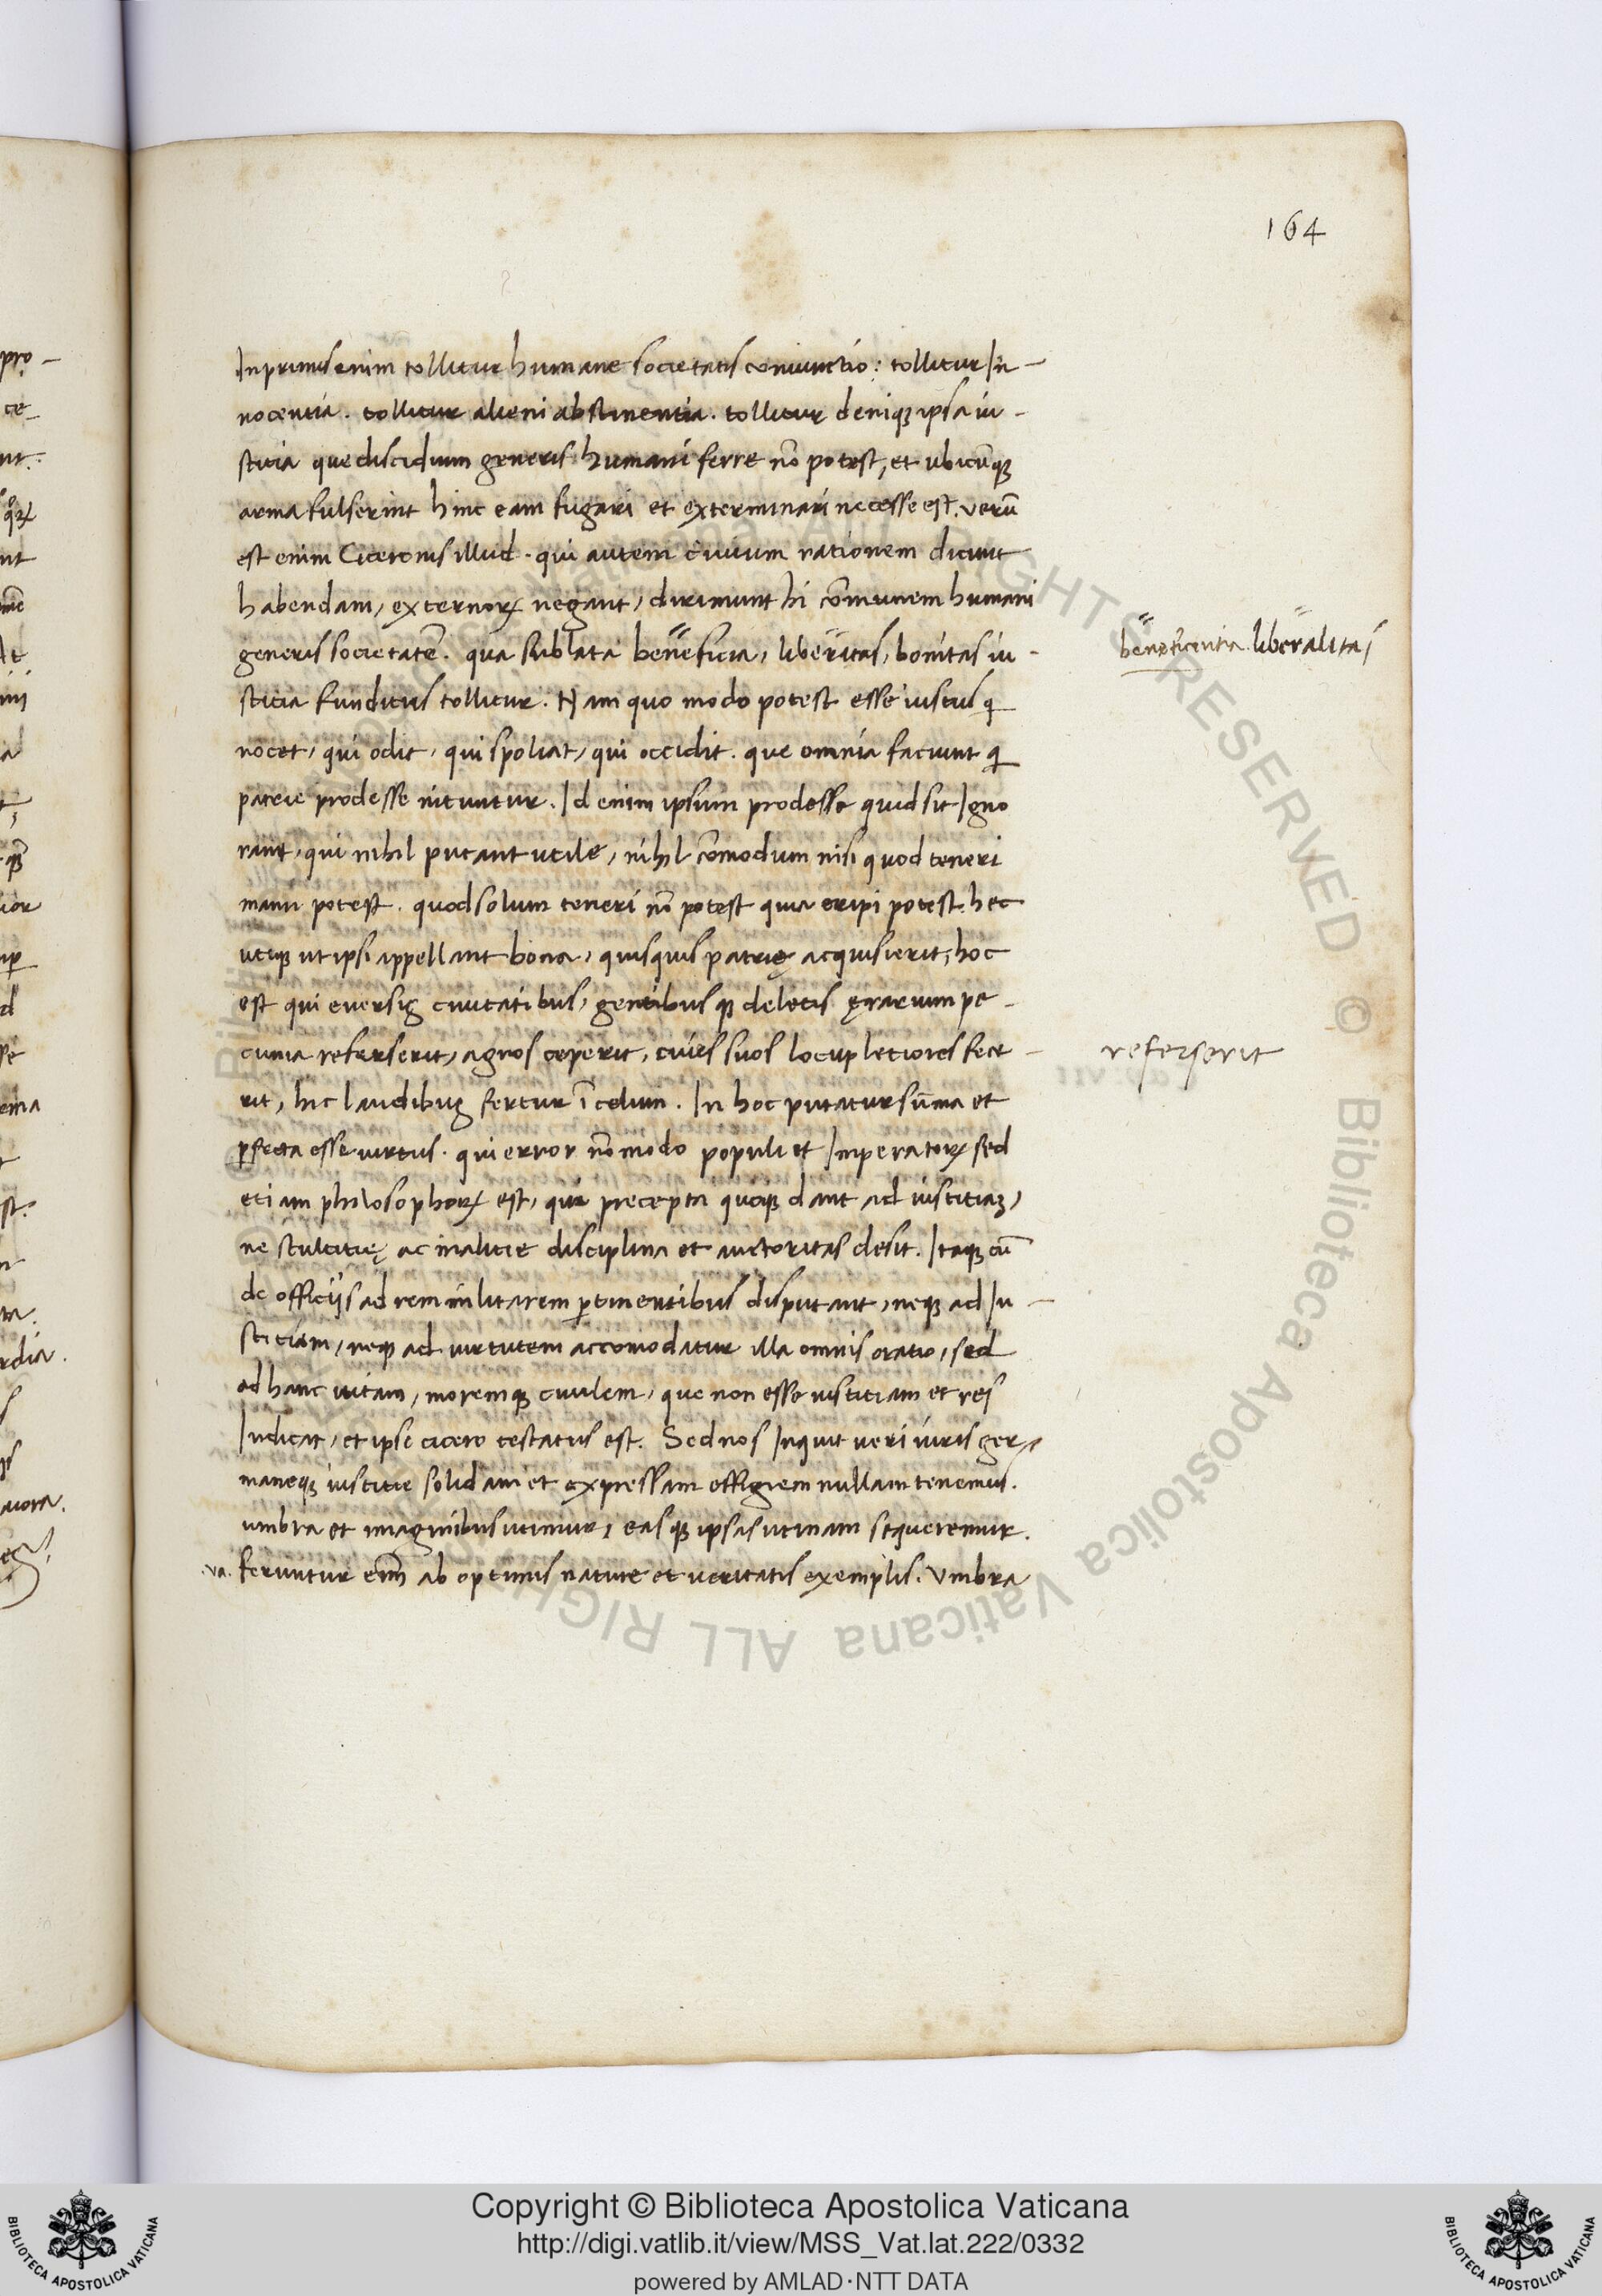 164
Inprimis enim tollitur humane societatis coniunctio: tollitur In-
nocentia. tollitur alieni abstinentia. tollitur deniqꝫ ipsa iu-
sticia que discidium generis humani ferre nō potest, et ubicūqꝫ
arma fulserint hinc eam fugari et exterminari necesse est. verū
est enim Ciceronis illud. qui autem ciuium rationem dicunt
habendam, externoꝝ negant, dirimunt hi cōmunem humani
generis societatē. qua sublata beneficia, liberitas, bonitas iu-
sticia funditus tollitur. Nam quo modo potest esse iustus qi
nocet, qui odit, qui spoliat, qui occidit. que omnia faciunt qi
patrie prodesse nituntur. Id enim ipsum prodesse quid sit Igno
rant, qui nihil putant utile, nihil cōmodum nisi quod teneri
manu potest. quod solum teneri nō potest quia eripi potest. hec
utiqꝫ ut ipsi appellant bona, quisquis patrię acquisierit, hoc
est qui euersis ciuitatibus, gentibusqꝫ deletis ęrarium pe-
cunia refarserit, agros ceperit, ciues suos locupletiores fece-
rit, hic laudibus fertur ī celum. In hoc putatur sūma et
ꝑfecta esse uirtus. qui error nō modo populi et Imperatoꝝ sed
etiam philosophoꝝ est, qui precepta quoqꝫ dant ad iustitiaꝫ,
ne stultitię ac malitie disciplina et auctoritas desit. Itaqꝫ cū
de officijs ad rem militarem ꝑtinentibus disputant, neqꝫ ad Iu-
sticiam, neqꝫ ad uirtutem accomodatur illa omnis oratio, sed
ad hanc uitam, moremqꝫ ciuilem, que non esse iustitiam et res
Indicat, et ipse cicero testatus est. Sed nos Inquit ueri iuris ger-
maneqꝫ iustitie solidam et expressam effigiem nullam tenemus.
umbra et imaginibus utimur, easqꝫ ipsas utinam sequeremur.
.va. feruntur enī ab optimis nature et ueritatis exemplis. Vmbra
beneficentia. liberalitas
refersorit
Copyright © Biblioteca Apostolica Vaticana
http://digi.vatlib.it/view/MSS_Vat.lat.222/0332
powered by AMLAD·NTT DATA
BIBLIOTECA APOSTOLICA VATICANA
BIBLIOTECA APOSTOLICA VATICANA